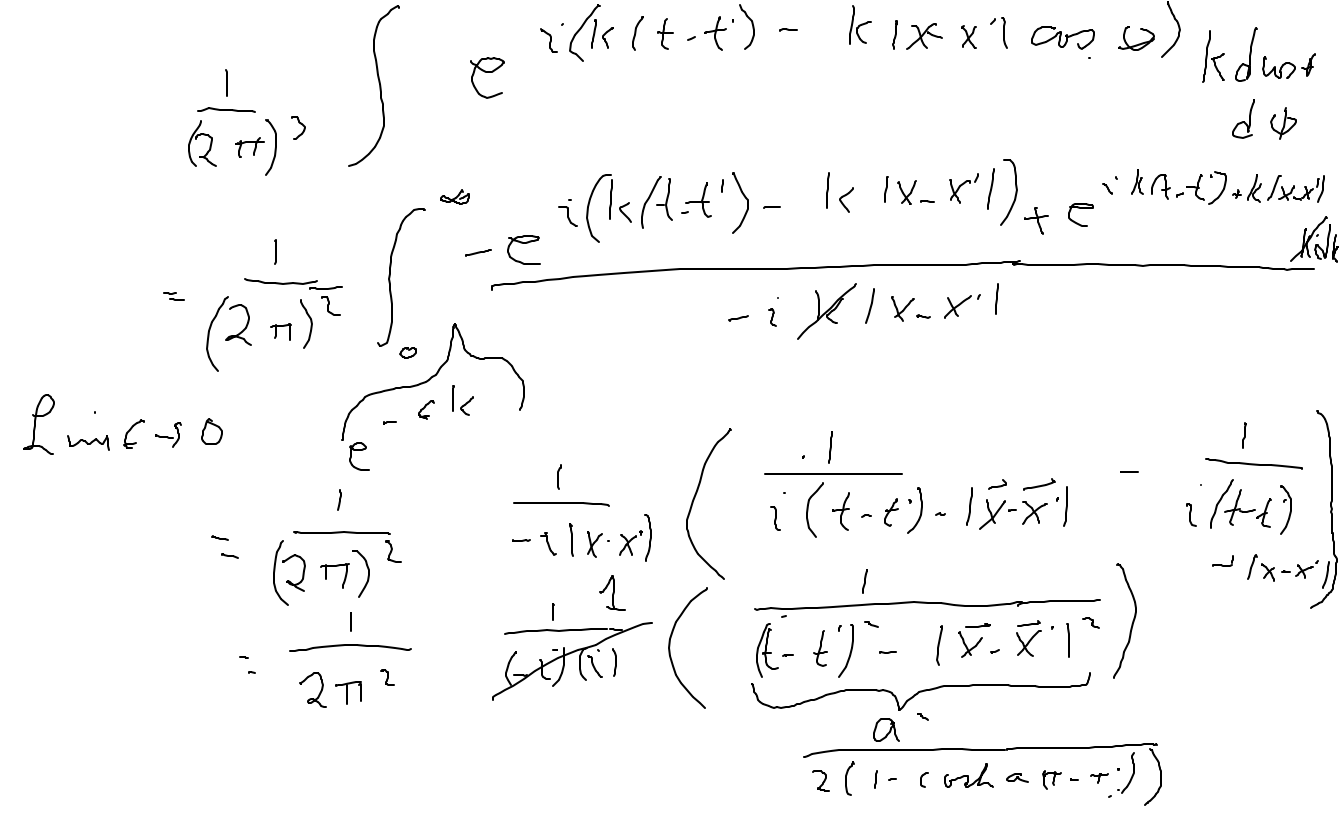 1/(2π)³ ∫ e^{i(k(t-t') - k|x-x'| cos θ)} k d cos θ dφ
= 1/(2π)² ∫₀^∞ (-e^{i(k(t-t') - k|x-x'|)} + e^{i k(t-t') + k|x-x'|}) / (-i k |x-x'|) k dk
Lim ε→0 e^{-εk}
= 1/(2π)² 1/(-i|x-x'|) ( 1/(i(t-t') - |x⃗-x⃗'|) - 1/(i(t-t') - |x-x'|) )
= 1/(2π²) 1/((-i)(i)) 1 ( 1/((t-t')² - |x⃗-x⃗'|²) )
a² / 2(1-cosh a(τ-τ'))